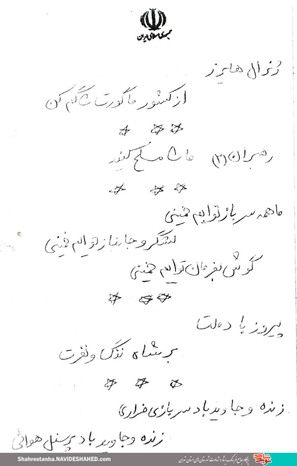 جمهوری اسلامی ایران
ژنرال هایزر
از کشور ما گورت را گم کن
رهبران (۲) ما را مسلح کنید
ما همه سرباز توایم خمینی
لشگر و جانباز توایم خمینی
گوش بفرمان توایم خمینی
پیروز باد ملت
بر شاه ننگ و نفرت
زنده و جاوید باد سربازی فراری
زنده و جاوید باد پرسنل هوائی
Shahrestanha.NAVIDESHAHED.com